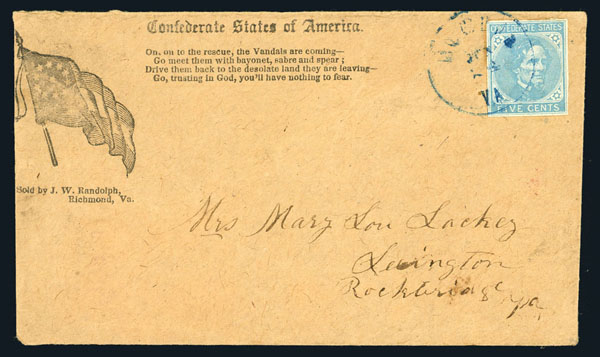 Confederate States of America.
On, on to the rescue, the Vandals are coming—
Go meet them with bayonet, sabre and spear;
Drive them back to the desolate land they are leaving—
Go, trusting in God, you'll have nothing to fear.
CONFEDERATE STATES
FIVE CENTS
VA
Sold by J. W. Randolph,
Richmond, Va.
Mrs Mary Lou Lackey
Lexington
Rockbridge Va